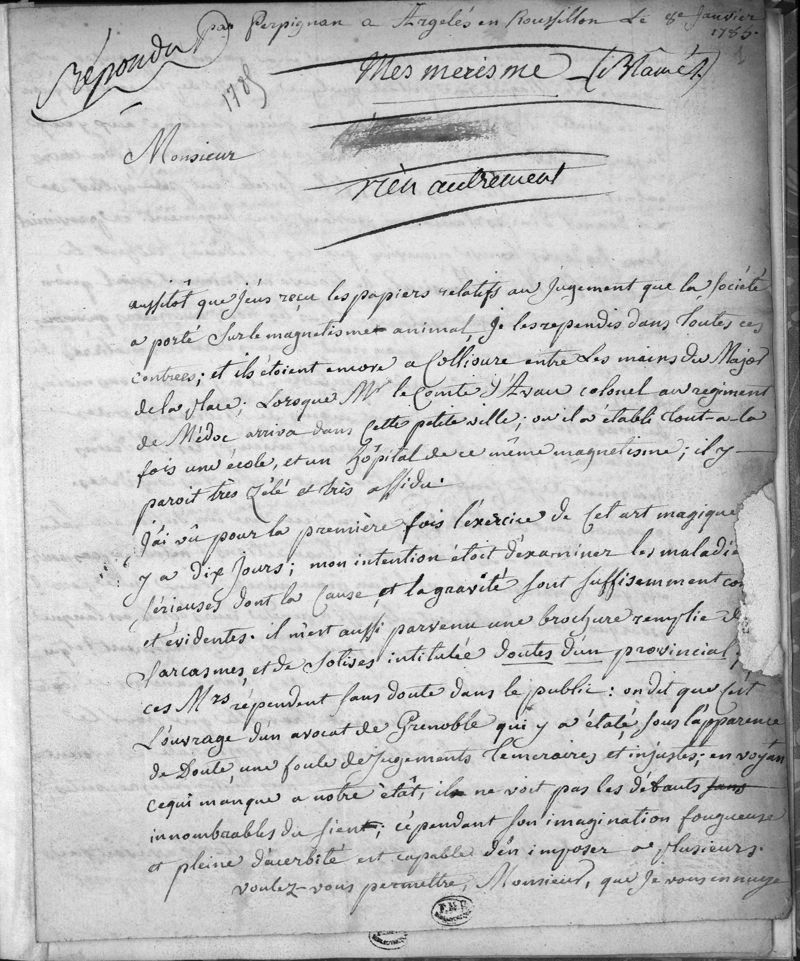 par Perpignan a Argelés en Roussillon Le 8e Janvier
1785.
répondu
Mesmerisme (Blamé)
1785
Monsieur
rien autrement
aussitôt que j'eus reçu les papiers relatifs au Jugement que la Société
a porté Sur le magnetisme animal, Je les rependis dans Toutes ces
contrées; et ils étoient encore a Collioure entre Les mains du Major
de la place; Lorsque Mr le Comte d'Avau colonel au regiment
de Médoc arriva dans Cette petite ville; ou il a établi tout-a-la
fois une école, et un hôpital de ce même magnetisme; il y
paroit très Zélé et très assidu.
J'ai vû pour la première fois l'exercice de Cet art magique
y a dix Jours; mon intention étoit d'examiner les maladie
sérieuses dont la Cause et la gravité sont suffisemment
et évidentes. il m'est aussi parvenu une brochure remplie
Sarcasmes, et de Sotises intitulée doutes d'un provincial
ces Mrs répendent sans doute dans le public: on dit que C'est
L'ouvrage d'un avocat de Grenoble qui y a étalé, sous l'apparence
de Doute, une foule de Jugements Temeraires et injustes; en voyan
ce qui manque a notre état, il ne voit pas les défauts
innombrables du sient; cépendant son imagination fougueuse
et pleine d'acerbité est capable d'en imposer a plusieurs.
voulez-vous permettre, Monsieur, que Je vous ennuye